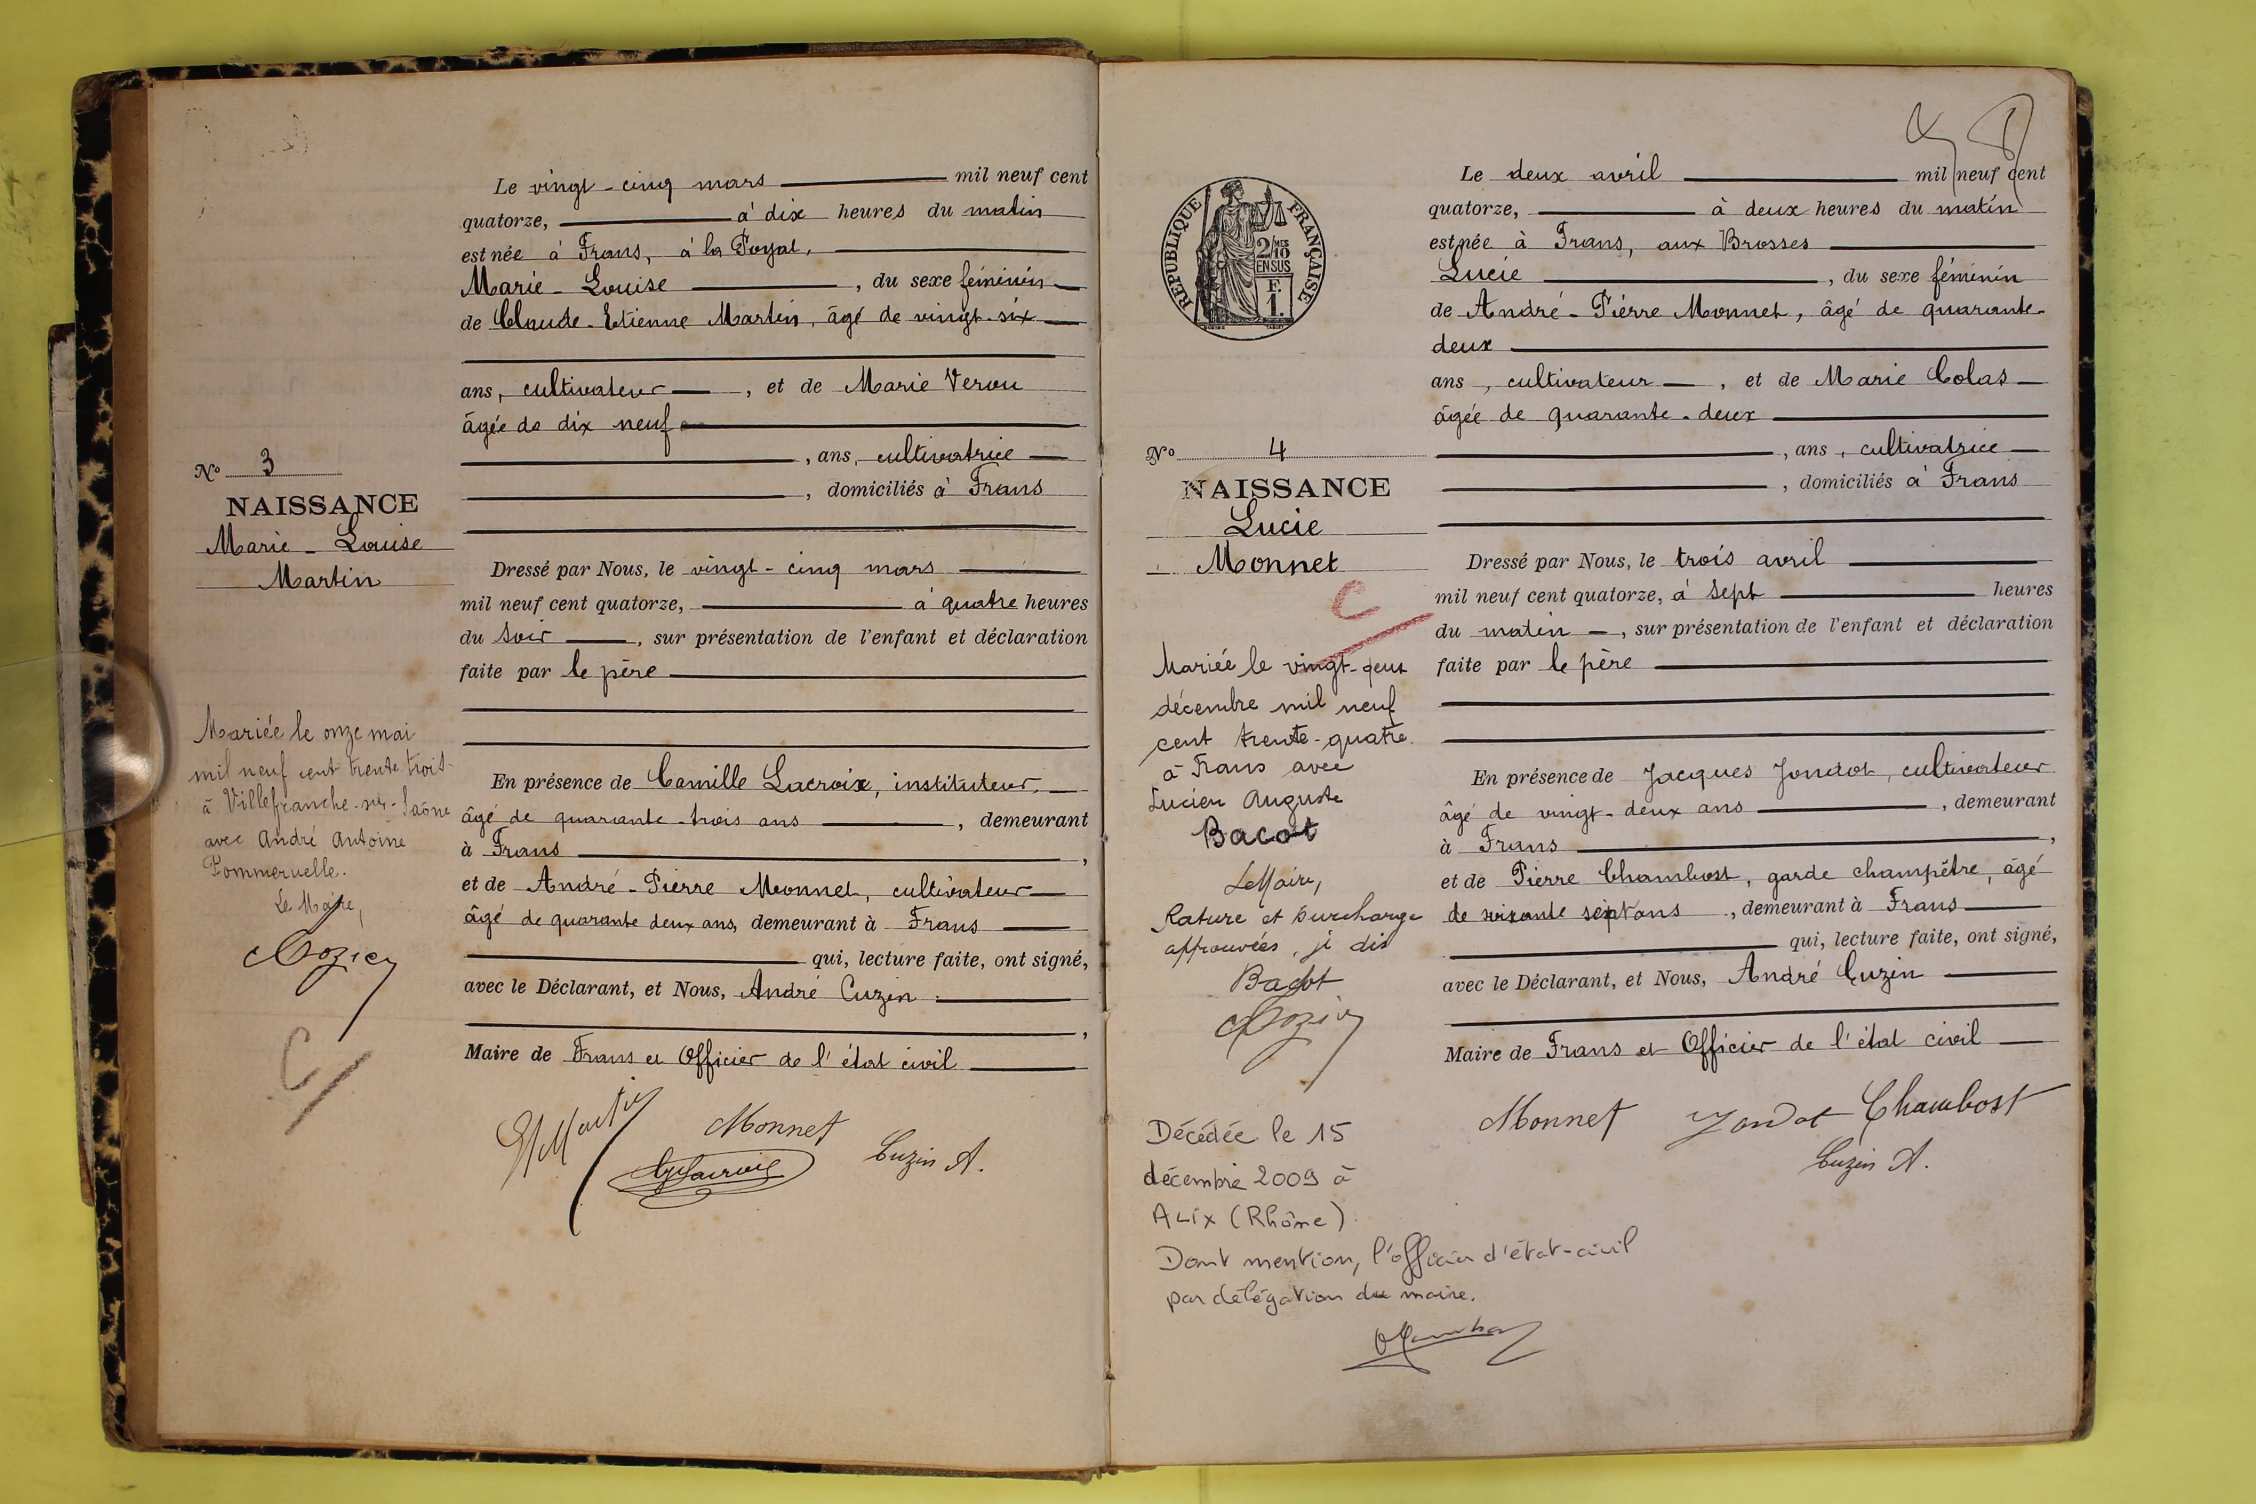 Le vingt-cinq mars mil neuf cent
quatorze, à dix heures du matin
est née à Frans, à la Poyat,
Marie-Louise, du sexe féminin
de Claude-Etienne Martin, âgé de vingt-six
ans, cultivateur, et de Marie Verou
âgée de dix neuf
, ans, cultivatrice
, domiciliés à Frans
No 3
NAISSANCE
Marie-Louise
Martin
Dressé par Nous, le vingt-cinq mars
mil neuf cent quatorze, à quatre heures
du soir, sur présentation de l'enfant et déclaration
faite par le père
En présence de Camille Lacroix, instituteur,
âgé de quarante-trois ans, demeurant
à Frans,
et de André-Pierre Monnet, cultivateur
âgé de quarante deux ans, demeurant à Frans
qui, lecture faite, ont signé,
avec le Déclarant, et Nous, André Cuzin
,
Maire de Frans et Officier de l'état civil
Mariée le onze mai
mil neuf cent trente trois
à Villefranche-sur-Saône
avec André Antoine
Pommeruelle.
Le Maire,
C
Martin
Monnet
Lacroix
Cuzin A.
RÉPUBLIQUE FRANÇAISE
2/10
EN SUS
F.
1.
Le deux avril mil neuf cent
quatorze, à deux heures du matin
est née à Frans, aux Brosses
Lucie, du sexe féminin
de André-Pierre Monnet, âgé de quarante-
deux
ans, cultivateur, et de Marie Colas
âgée de quarante-deux
, ans, cultivatrice
, domiciliés à Frans
No 4
NAISSANCE
Lucie
Monnet
C
Dressé par Nous, le trois avril
mil neuf cent quatorze, à sept heures
du matin, sur présentation de l'enfant et déclaration
faite par le père
En présence de Jacques Jondot, cultivateur
âgé de vingt-deux ans, demeurant
à Frans,
et de Pierre Chambost, garde champêtre, âgé
de soixante sept ans, demeurant à Frans
qui, lecture faite, ont signé,
avec le Déclarant, et Nous, André Cuzin
Maire de Frans et Officier de l'état civil
Monnet
Jondot
Chambost
Cuzin A.
Mariée le vingt-deux
décembre mil neuf
cent trente-quatre
à Frans avec
Lucien Auguste
Bacot
Le Maire,
Rature et surcharge
approuvées, je dis
Bacot
Décédée le 15
décembre 2009 à
ALIX (Rhône)
Dont mention, l'officier d'état-civil
par délégation du maire.